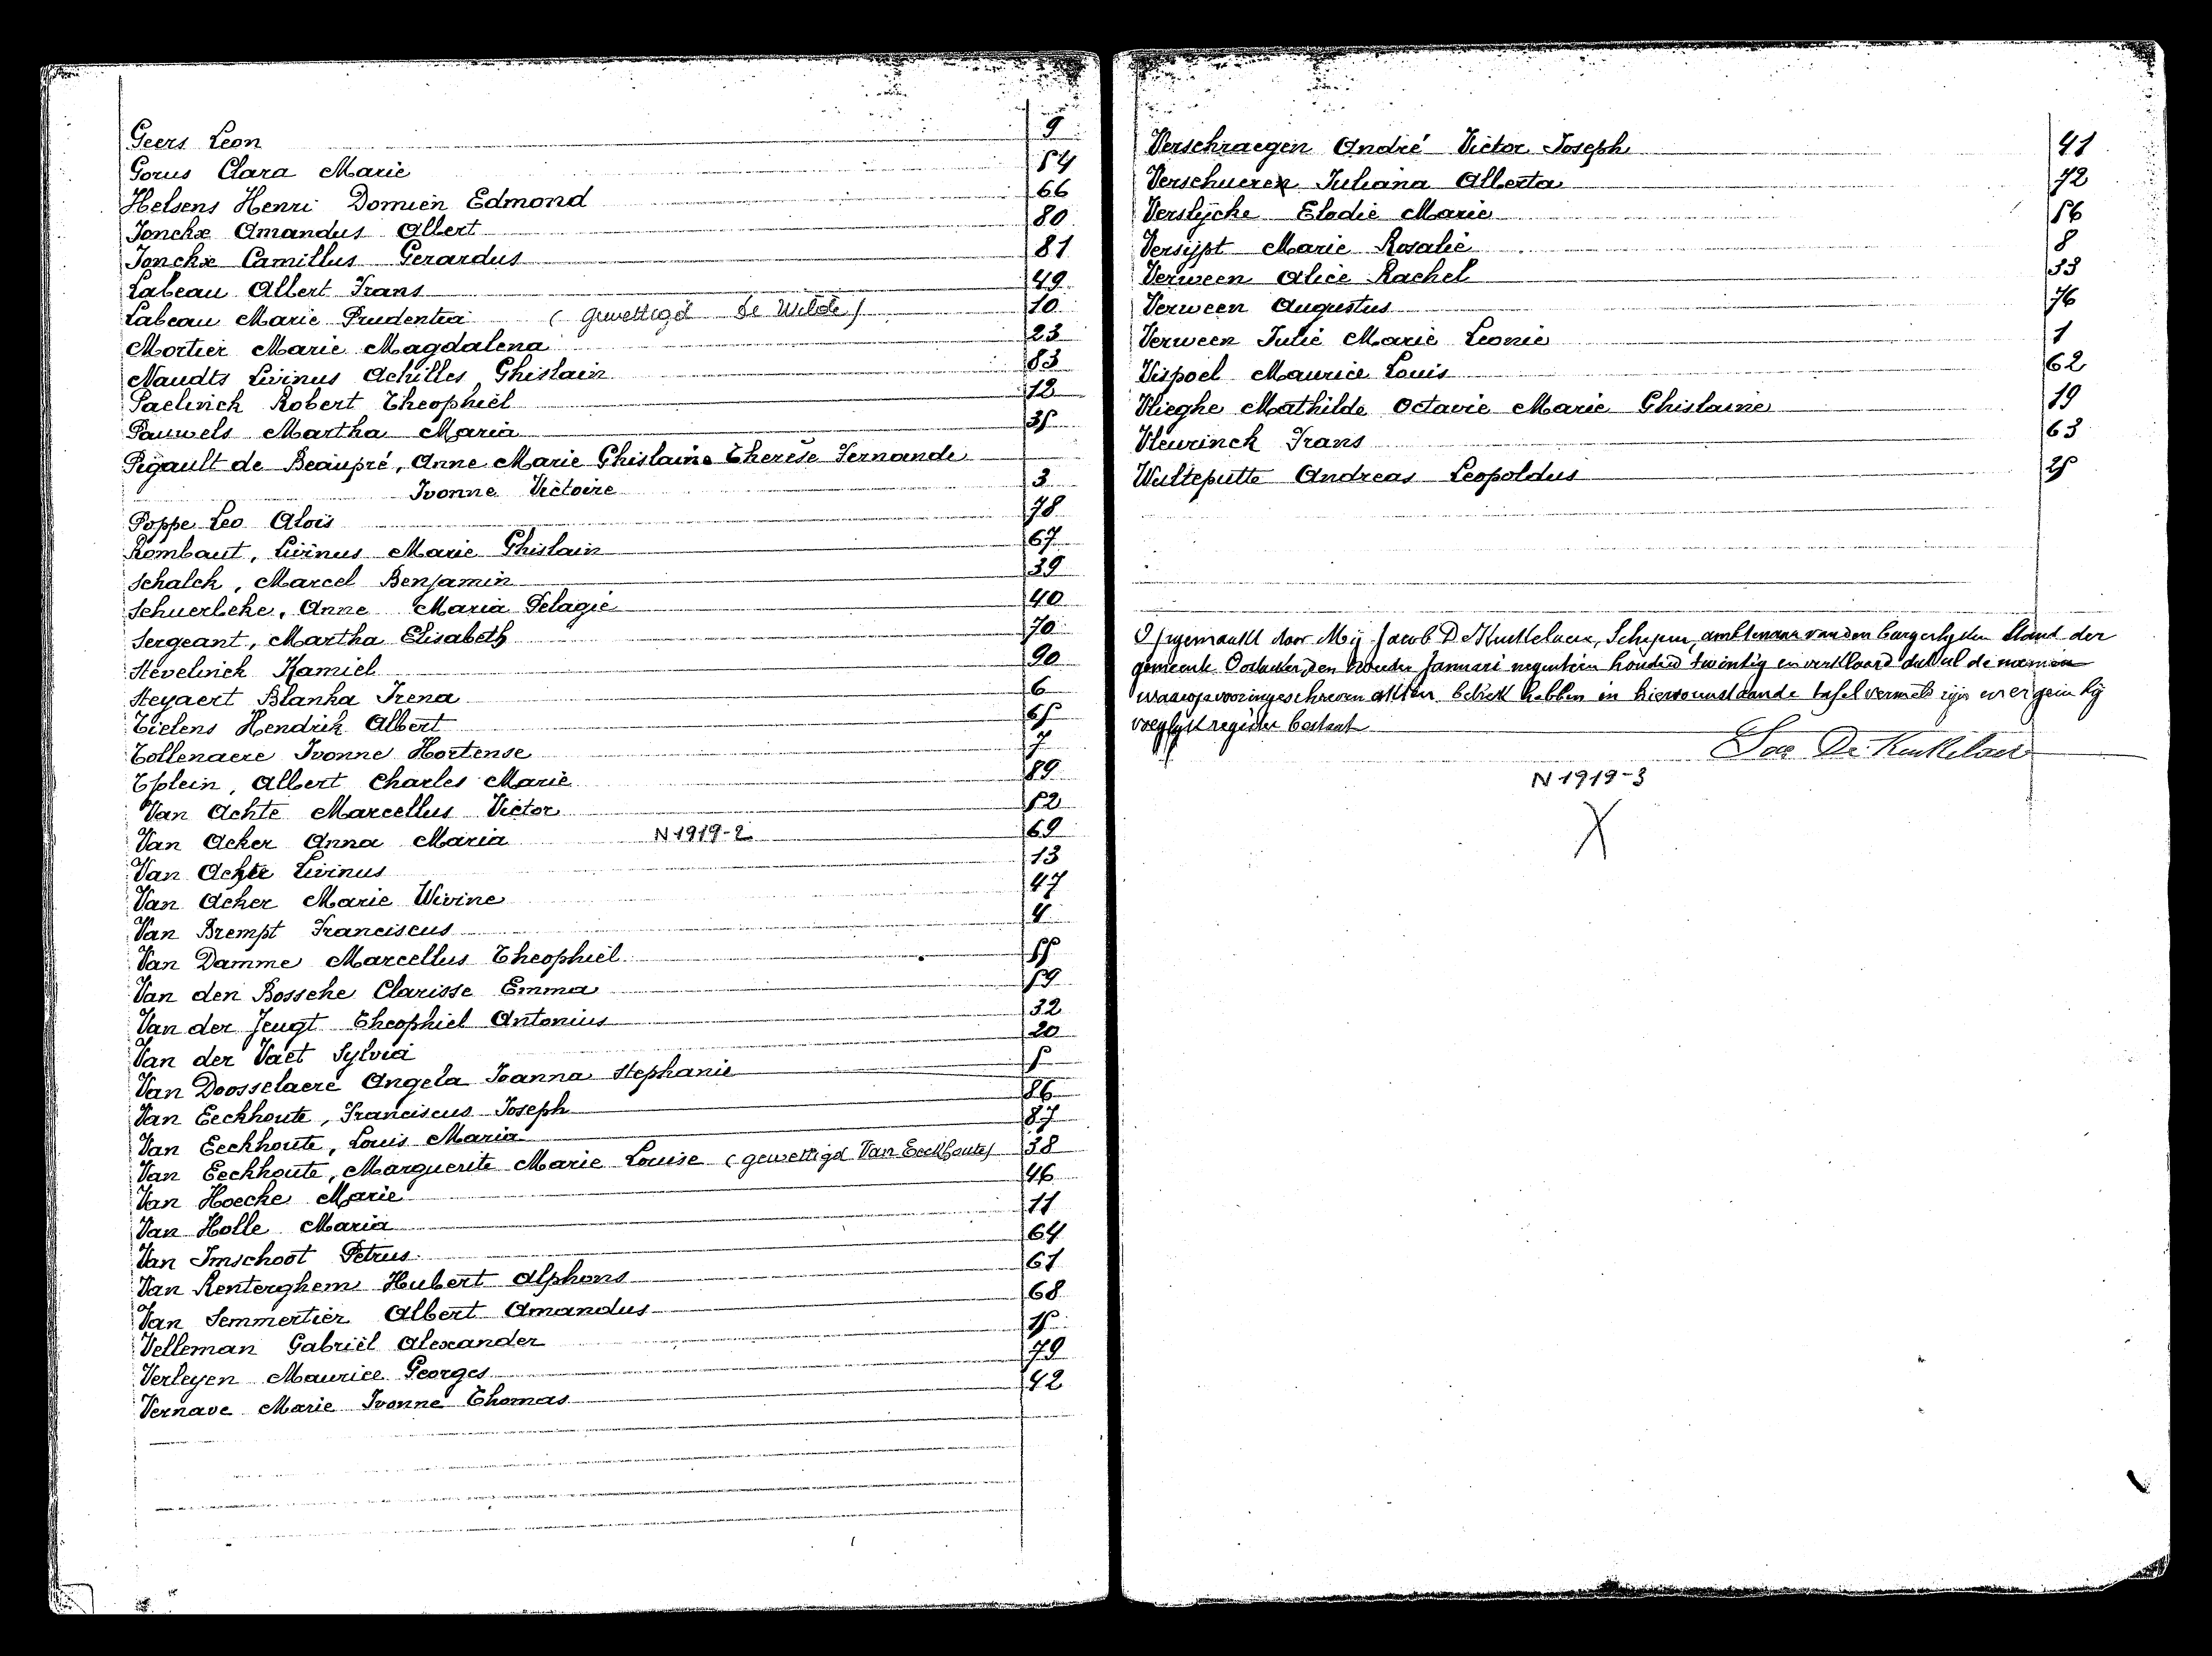 Geers Leon 9
Gorus Clara Marie 54
Helsens Henri Domien Edmond 66
Jonckx Amandus Albert 80
Jonckx Camillus Gerardus 81
Labeau Albert Frans 49
Labeau Marie Prudentia (gewettigd De Wilde) 10
Mortier Marie Magdalena 23
Naudts Livinus Achilles Ghislain 83
Paelinck Robert Theophiel 12
Pauwels Martha Maria 35
Pigault de Beaupré, Anne Marie Ghislaine Therèse Fernande
Ivonne Victoire 3
Poppe Leo Alois 78
Rombaut, Livinus Marie Ghislain 67
Schalck, Marcel Benjamin 39
Schuerleke, Anne Maria Pelagie 40
Sergeant, Martha Elisabeth 70
Stevelinck Kamiel 90
Steyaert Blanka Irena 6
Tielens Hendrik Albert 65
Tollenaere Ivonne Hortense 7
Tplein, Albert Charles Marie 89
Van Achte Marcellus Victor 52
Van Acker Anna Maria N 1919-2 69
Van Achte Livinus 13
Van Acker Marie Wivine 47
Van Brempt Franciscus 4
Van Damme Marcellus Theophiel 55
Van den Bossche Clarisse Emma 59
Van der Jeugt Theophiel Antonius 32
Van der Vaet Sylvia 20
Van Doosselaere Angela Joanna Stephanie 5
Van Eeckhoute, Franciscus Joseph 86
Van Eeckhoute, Louis Maria 87
Van Eeckhoute, Marguerite Marie Louise (gewettigd Van Eeckhoute) 38
Van Hoecke Marie 46
Van Holle Maria 11
Van Imschoot Petrus 64
Van Renterghem Hubert Alphons 61
Van Semmertier Albert Amandus 68
Velleman Gabriël Alexander 15
Verleyen Maurice Georges 79
Vernave Marie Ivonne Thomas 42
Verschraegen André Victor Joseph 41
Verschueren Juliana Alberta 72
Verslycke Elodie Marie 56
Versijpt Marie Rosalie 8
Verween Alice Rachel 33
Verween Augustus 76
Verween Julie Marie Leonie 1
Vispoel Maurice Louis 62
Vlieghe Mathilde Octavie Marie Ghislaine 19
Vleurinck Frans 63
Wulteputte Andreas Leopoldus 25
Opgemaakt door Mij Jacob De Kuckelaere, Schepen, ambtenaar van den burgerlyken stand der
gemeente Oostacker, den Januari negentien honderd twintig en verklaard dat al de namen
waarop vooringeschreven akten betrek hebben in hiervorenstaande tafel vermeld zijn en er geen by
voeglykregister bestaat
Jac De Kuckelaere
N 1919-3
X